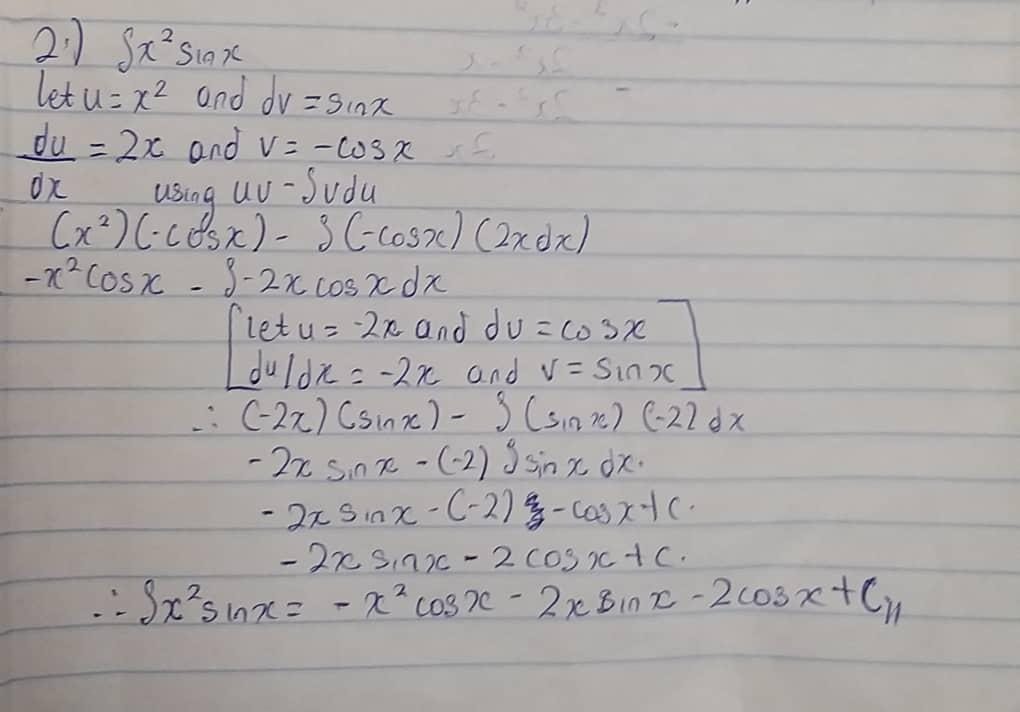 2.) ∫x² sin x
let u = x² and dv = sin x
du/dx = 2x and v = -cos x
using uv - ∫vdu
(x²)(-cos x) - ∫(-cos x)(2x dx)
-x² cos x - ∫-2x cos x dx
[let u = -2x and dv = cos x
du/dx = -2x and v = sin x]
∴ (-2x)(sin x) - ∫(sin x)(-2) dx
-2x sin x - (-2) ∫sin x dx.
-2x sin x - (-2) -cos x + C.
-2x sin x - 2 cos x + C.
∴ ∫x² sin x = -x² cos x - 2x sin x - 2cos x + C //